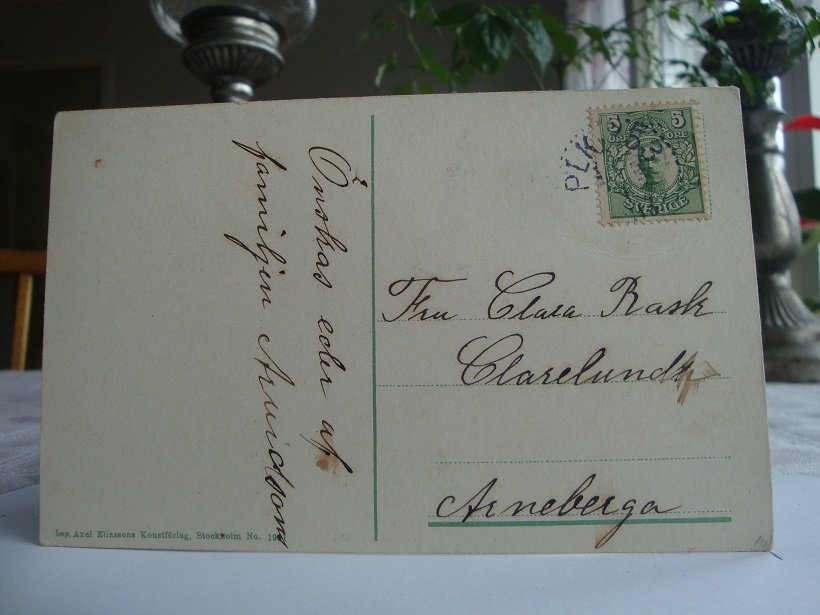 Önskas eder af
familjen Arvidsons
5 5
ÖRE
SVERIGE
Fru Clara Rask
Clarelund
Arneberga
Imp. Axel Eliassons Konstförlag, Stockholm No.